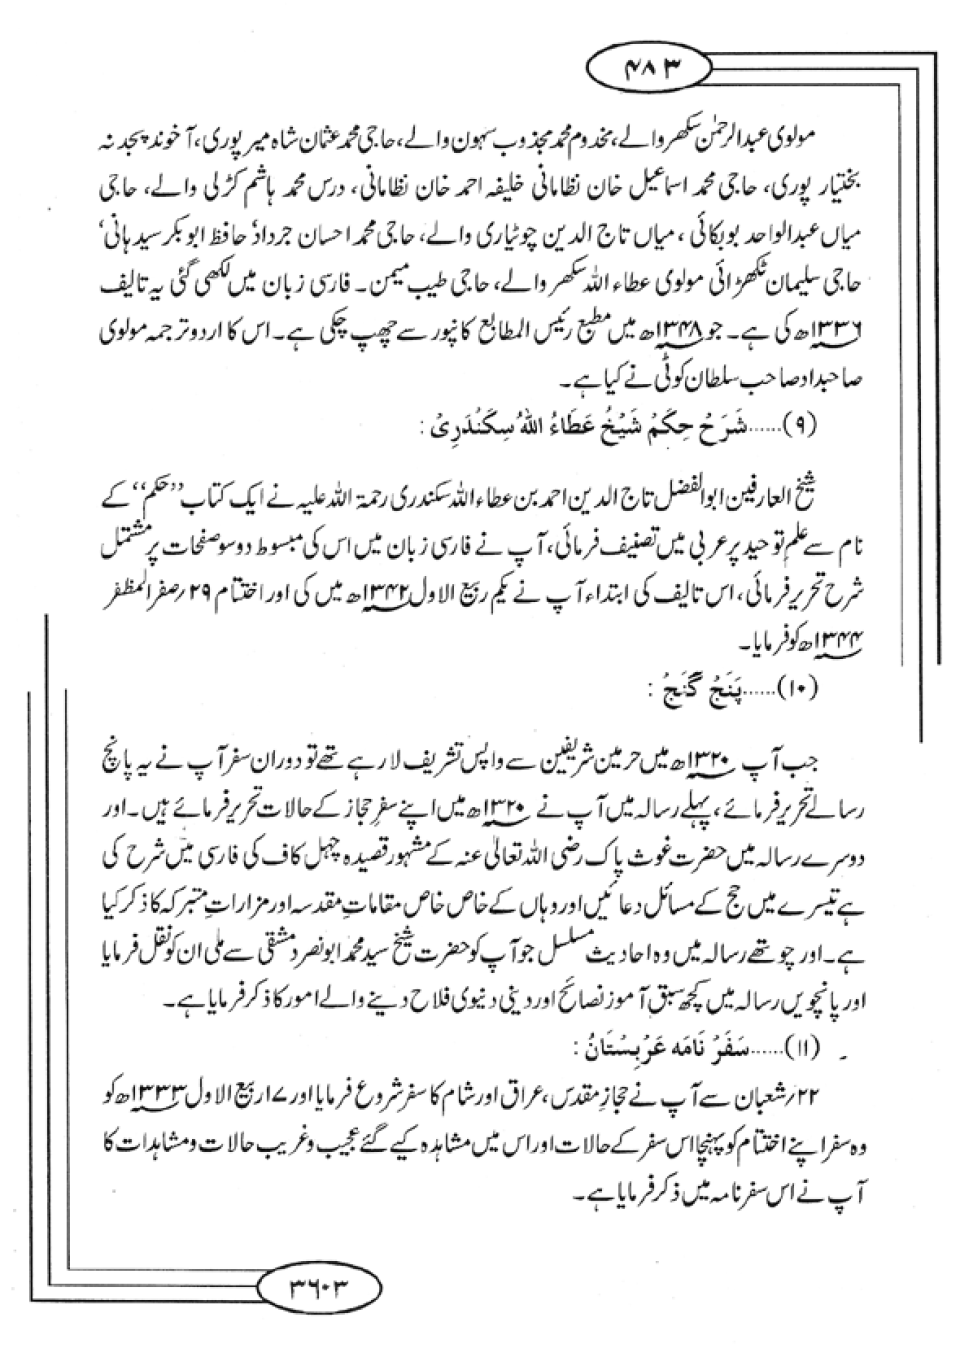 ۴۸۳
مولوی عبدالرحمٰن سکھر والے، مخدوم محمد مجذوب سہون والے، حاجی محمد عثمان شاہ میر پوری، آخوند پنجدنہ
بختیار پوری، حاجی محمد اسماعیل خان نظامانی خلیفہ احمد خان نظامانی، درس محمد ہاشم کڑلی والے، حاجی
میاں عبدالواحد بوبکائی ، میاں تاج الدین چوٹیاری والے، حاجی محمد احسان جرداد‘ حافظ ابوبکر سیدہانی‘
حاجی سلیمان ٹکھڑائی مولوی عطاء اللہ سکھر والے، حاجی طیب میمن۔ فارسی زبان میں لکھی گئی یہ تالیف
۱۳۳۶ھ کی ہے۔ جو ۱۳۴۸ھ میں مطبع رئیس المطابع کانپور سے چھپ چکی ہے۔ اس کا اردو ترجمہ مولوی
صاحبداد صاحب سلطان کوٹی نے کیا ہے۔
(۹)......شَرَحْ حِکَمْ شَیْخُ عَطَاءُ اللہُ سِکَنْدَرِیْ :
شیخ العارفین ابوالفضل تاج الدین احمد بن عطاء اللہ سکندری رحمۃ اللہ علیہ نے ایک کتاب ”حکم“ کے
نام سے علمِ توحید پر عربی میں تصنیف فرمائی، آپ نے فارسی زبان میں اس کی مبسوط دوسو صفحات پر مشتمل
شرح تحریر فرمائی، اس تالیف کی ابتداء آپ نے یکم ربیع الاول ۱۳۴۲ھ میں کی اور اختتام ۲۹؍صفر المظفر
۱۳۴۴ھ کو فرمایا۔
(۱۰)......پَنَجْ گَنَجْ :
جب آپ ۱۳۲۰ھ میں حرمین شریفین سے واپس تشریف لا رہے تھے تو دوران سفر آپ نے یہ پانچ
رسالے تحریر فرمائے، پہلے رسالہ میں آپ نے ۱۳۲۰ھ میں اپنے سفرِ حجاز کے حالات تحریر فرمائے ہیں۔ اور
دوسرے رسالہ میں حضرت غوث پاک رضی اللہ تعالیٰ عنہ کے مشہور قصیدہ چہل کاف کی فارسی میں شرح کی
ہے تیسرے میں حج کے مسائل دعائیں اور وہاں کے خاص خاص مقاماتِ مقدسہ اور مزاراتِ متبرکہ کا ذکر کیا
ہے۔ اور چوتھے رسالہ میں وہ احادیث مسلسل جو آپ کو حضرت شیخ سید محمد ابونصر دمشقی سے ملی ان کو نقل فرمایا
اور پانچویں رسالہ میں کچھ سبق آموز نصائح اور دینی دنیوی فلاح دینے والے امور کا ذکر فرمایا ہے۔
(۱۱)......سَفَرْ نَامَہ عَرَبِسْتَانُ :
۲۲؍شعبان سے آپ نے حجازِ مقدس، عراق اور شام کا سفر شروع فرمایا اور ۱۷ربیع الاول ۱۳۳۳ھ کو
وہ سفر اپنے اختتام کو پہنچا اس سفر کے حالات اور اس میں مشاہدہ کیے گئے عجیب و غریب حالات و مشاہدات کا
آپ نے اس سفر نامہ میں ذکر فرمایا ہے۔
۳۶۰۳